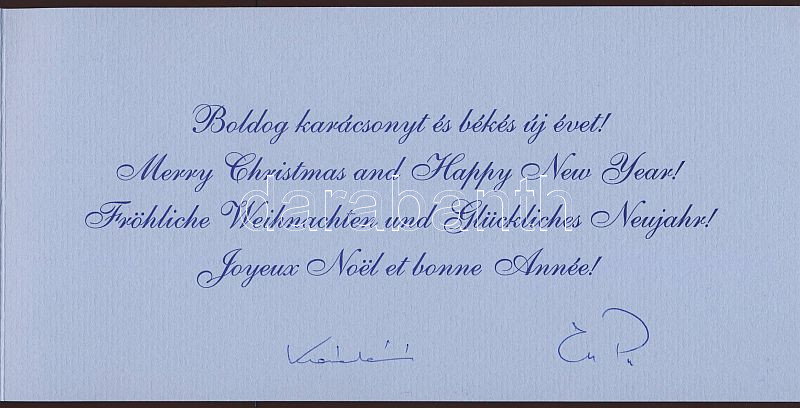 Boldog karácsonyt és békés új évet!
Merry Christmas and Happy New Year!
darabanth
Fröhliche Weihnachten und Glückliches Neujahr!
Joyeux Noël et bonne Année!